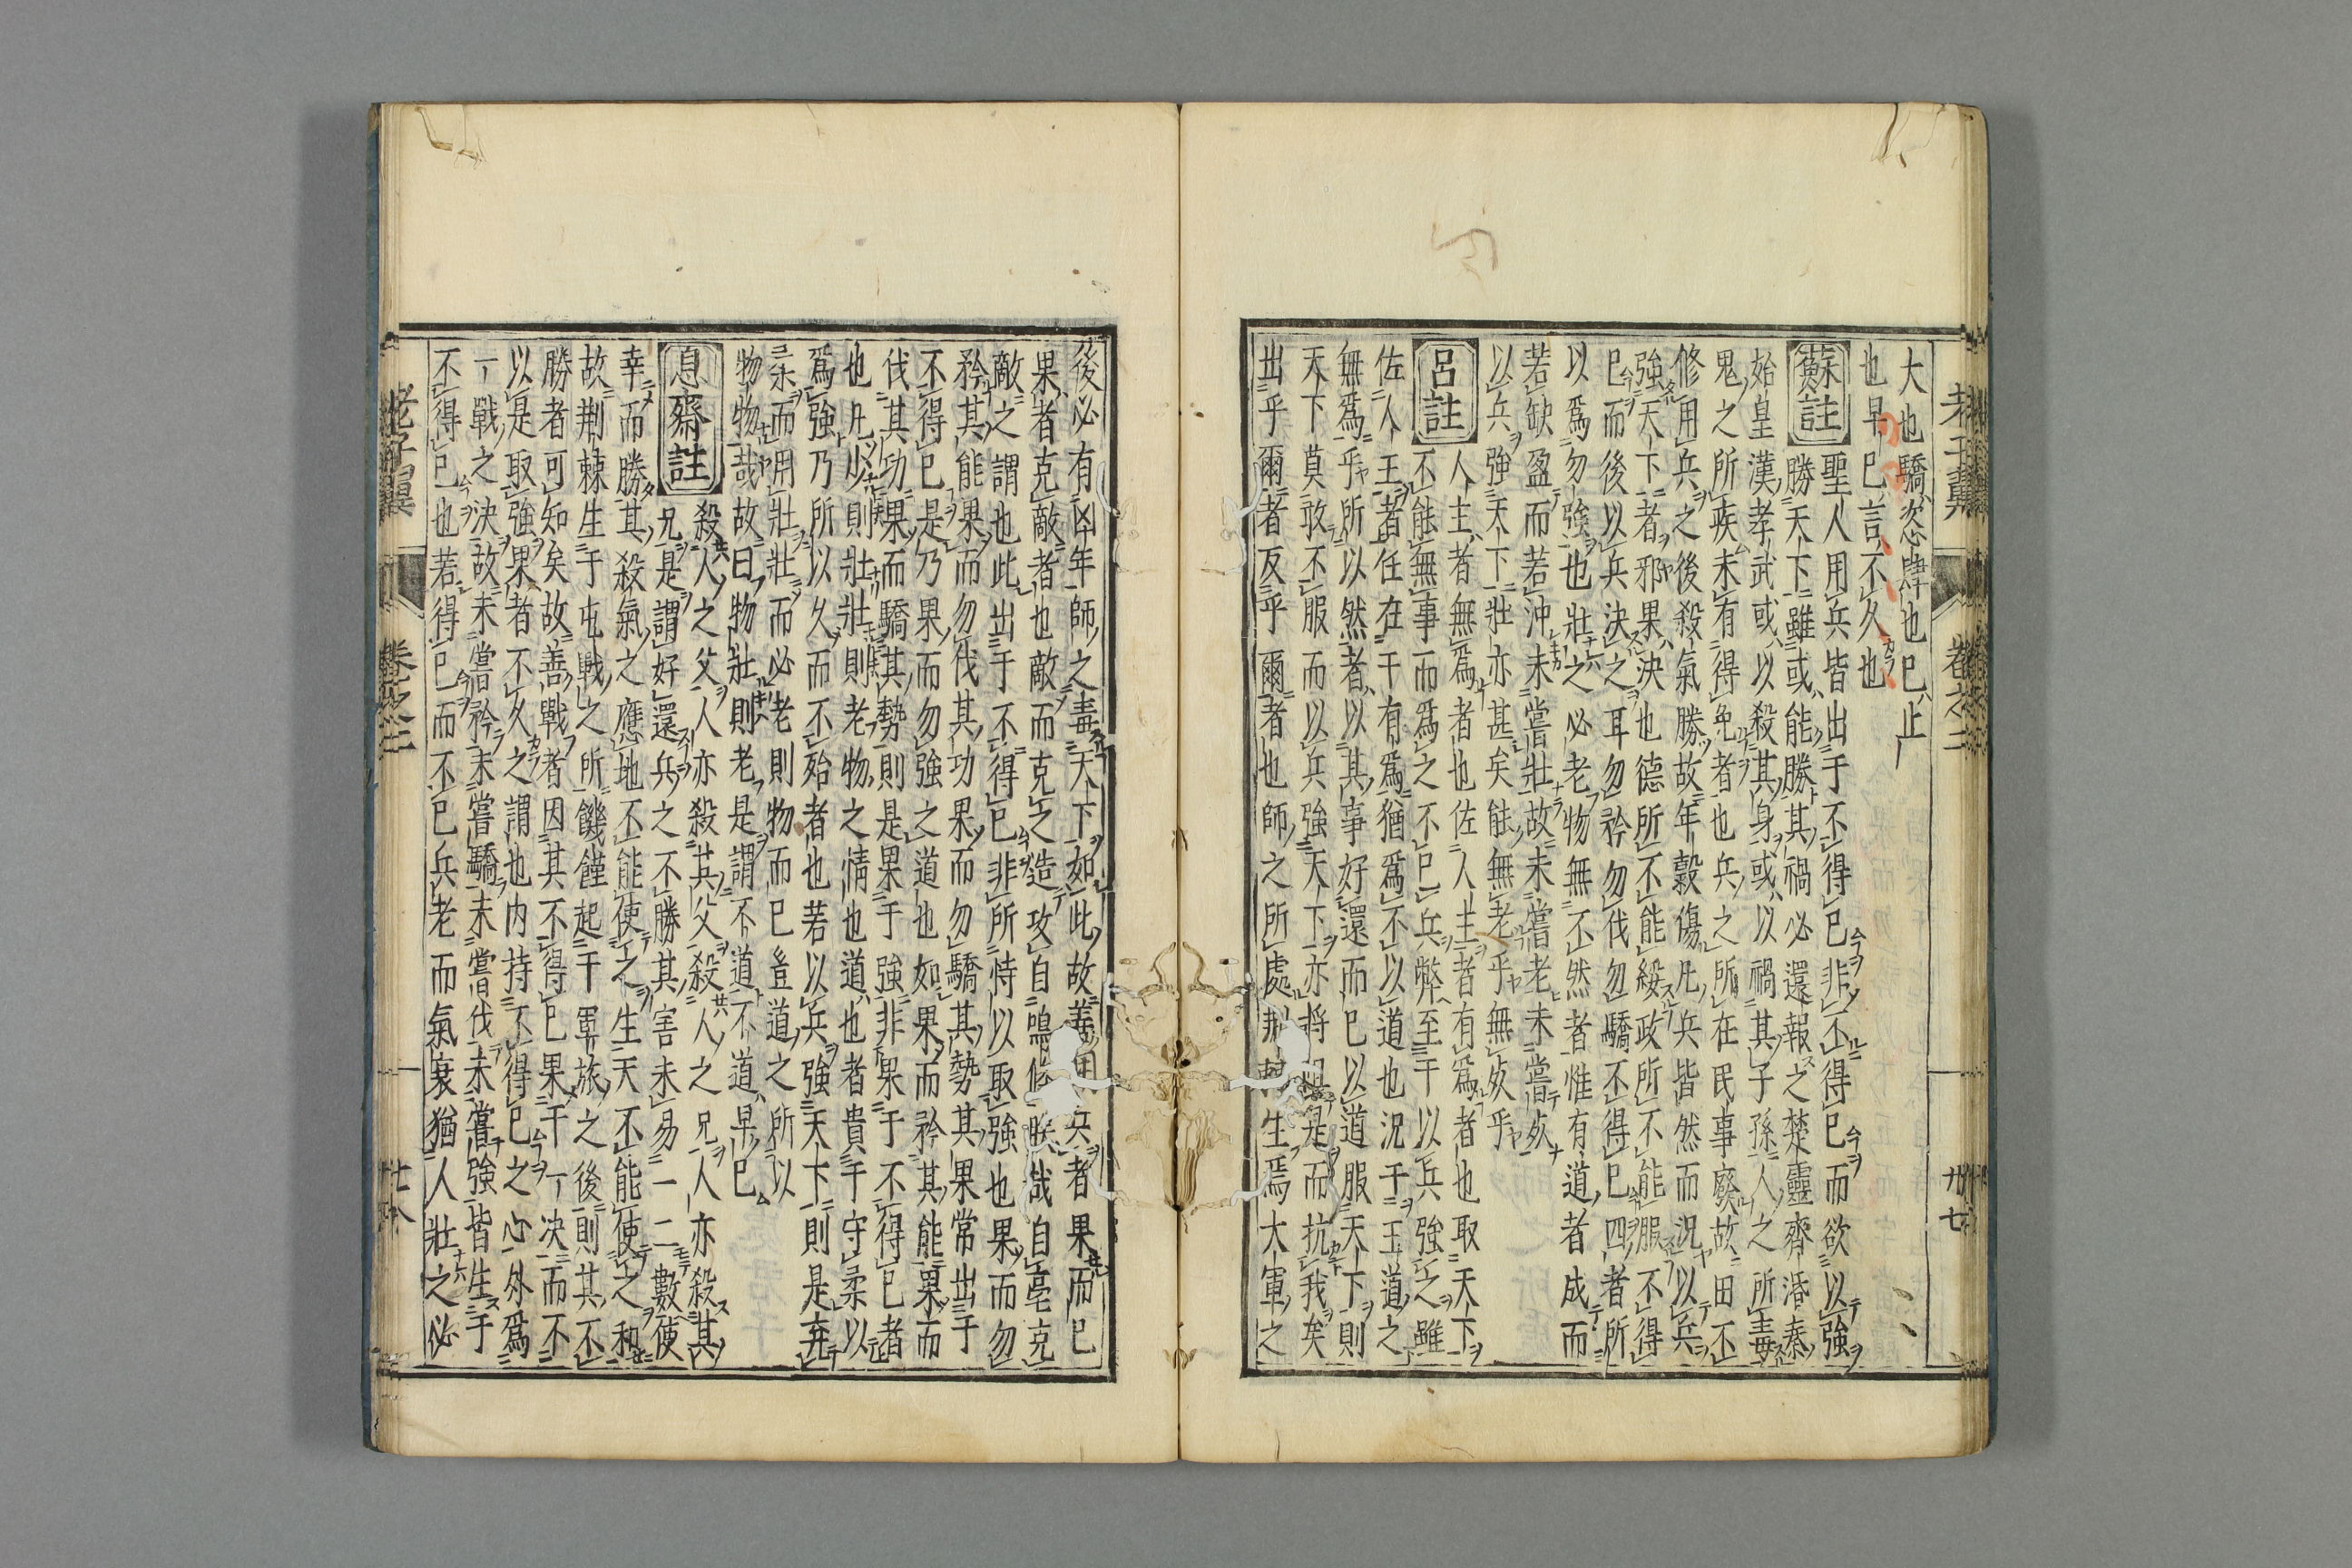 老子翼 卷之二 廿七
大也驕恣肆也已止
也早已言不久也
蘇註 聖人用兵皆出于不得已非不得已而欲以強
勝天下雖或能勝其禍必還報之楚靈齊湣秦
始皇漢孝武或以殺其身或以禍其子孫人之所毒
鬼之所疾未有得免者也兵之所在民事廢故田不
修用兵之後殺氣勝故年穀傷凡兵皆然而況以兵
強天下者邪果決也德所不能綏政所不能服不得
已而後以兵決之耳勿矜勿伐勿驕不得已四者所
以爲勿強也壯之必老物無不然者惟有道者成而
若缺盈而若沖未嘗壯故未嘗老未嘗死
以兵強天下壯亦甚矣能無老乎無死乎
呂註 人主者無爲者也佐人主者有爲者也取天下
不能無事而爲之不已兵弊至于以兵強之雖
佐人主者任在于有爲猶爲不以道也況于王道之
無爲乎所以然者以其事好還而已以道服天下則
天下莫敢不服而以兵強天下亦將是而抗我矣
出乎爾者反乎爾者也師之所處荊棘生焉大軍之
後必有凶年師之毒天下如此故善用兵者果而已
果者克敵者也敵而克之造攻自鳴條朕哉自亳克
敵之謂也此出于不得已非所恃以取強也果而勿
矜其能果而勿伐其功果而勿驕其勢其果常出于
不得已是乃果而勿強之道也如果而矜其能果而
伐其功果而驕其勢則是果于強非果于不得已者
也凡少則壯壯則老物之情也道也者貴于守柔以
爲強乃所以久而不殆者也若以兵強天下則是棄
柔而用壯壯而必老則物而已豈道之所以
物物哉故曰物壯則老是謂不道不道早已
息齋註 殺人之父人亦殺其父殺人之兄人亦殺其
兄是謂好還兵之不勝其害未易一二數使
幸而勝其殺氣之應地不能使之生天不能使之和
故荊棘生于屯戰之所饑饉起于軍旅之後則其不
勝者可知矣故善戰者因其不得已果于一決而不
以是取強果者不久之謂也內持不得已之心外爲
一戰之決故未嘗矜未嘗驕未嘗伐未嘗強皆生于
不得已也若得已而不已兵老而氣衰猶人壯之必
老子翼 卷之二 廿八